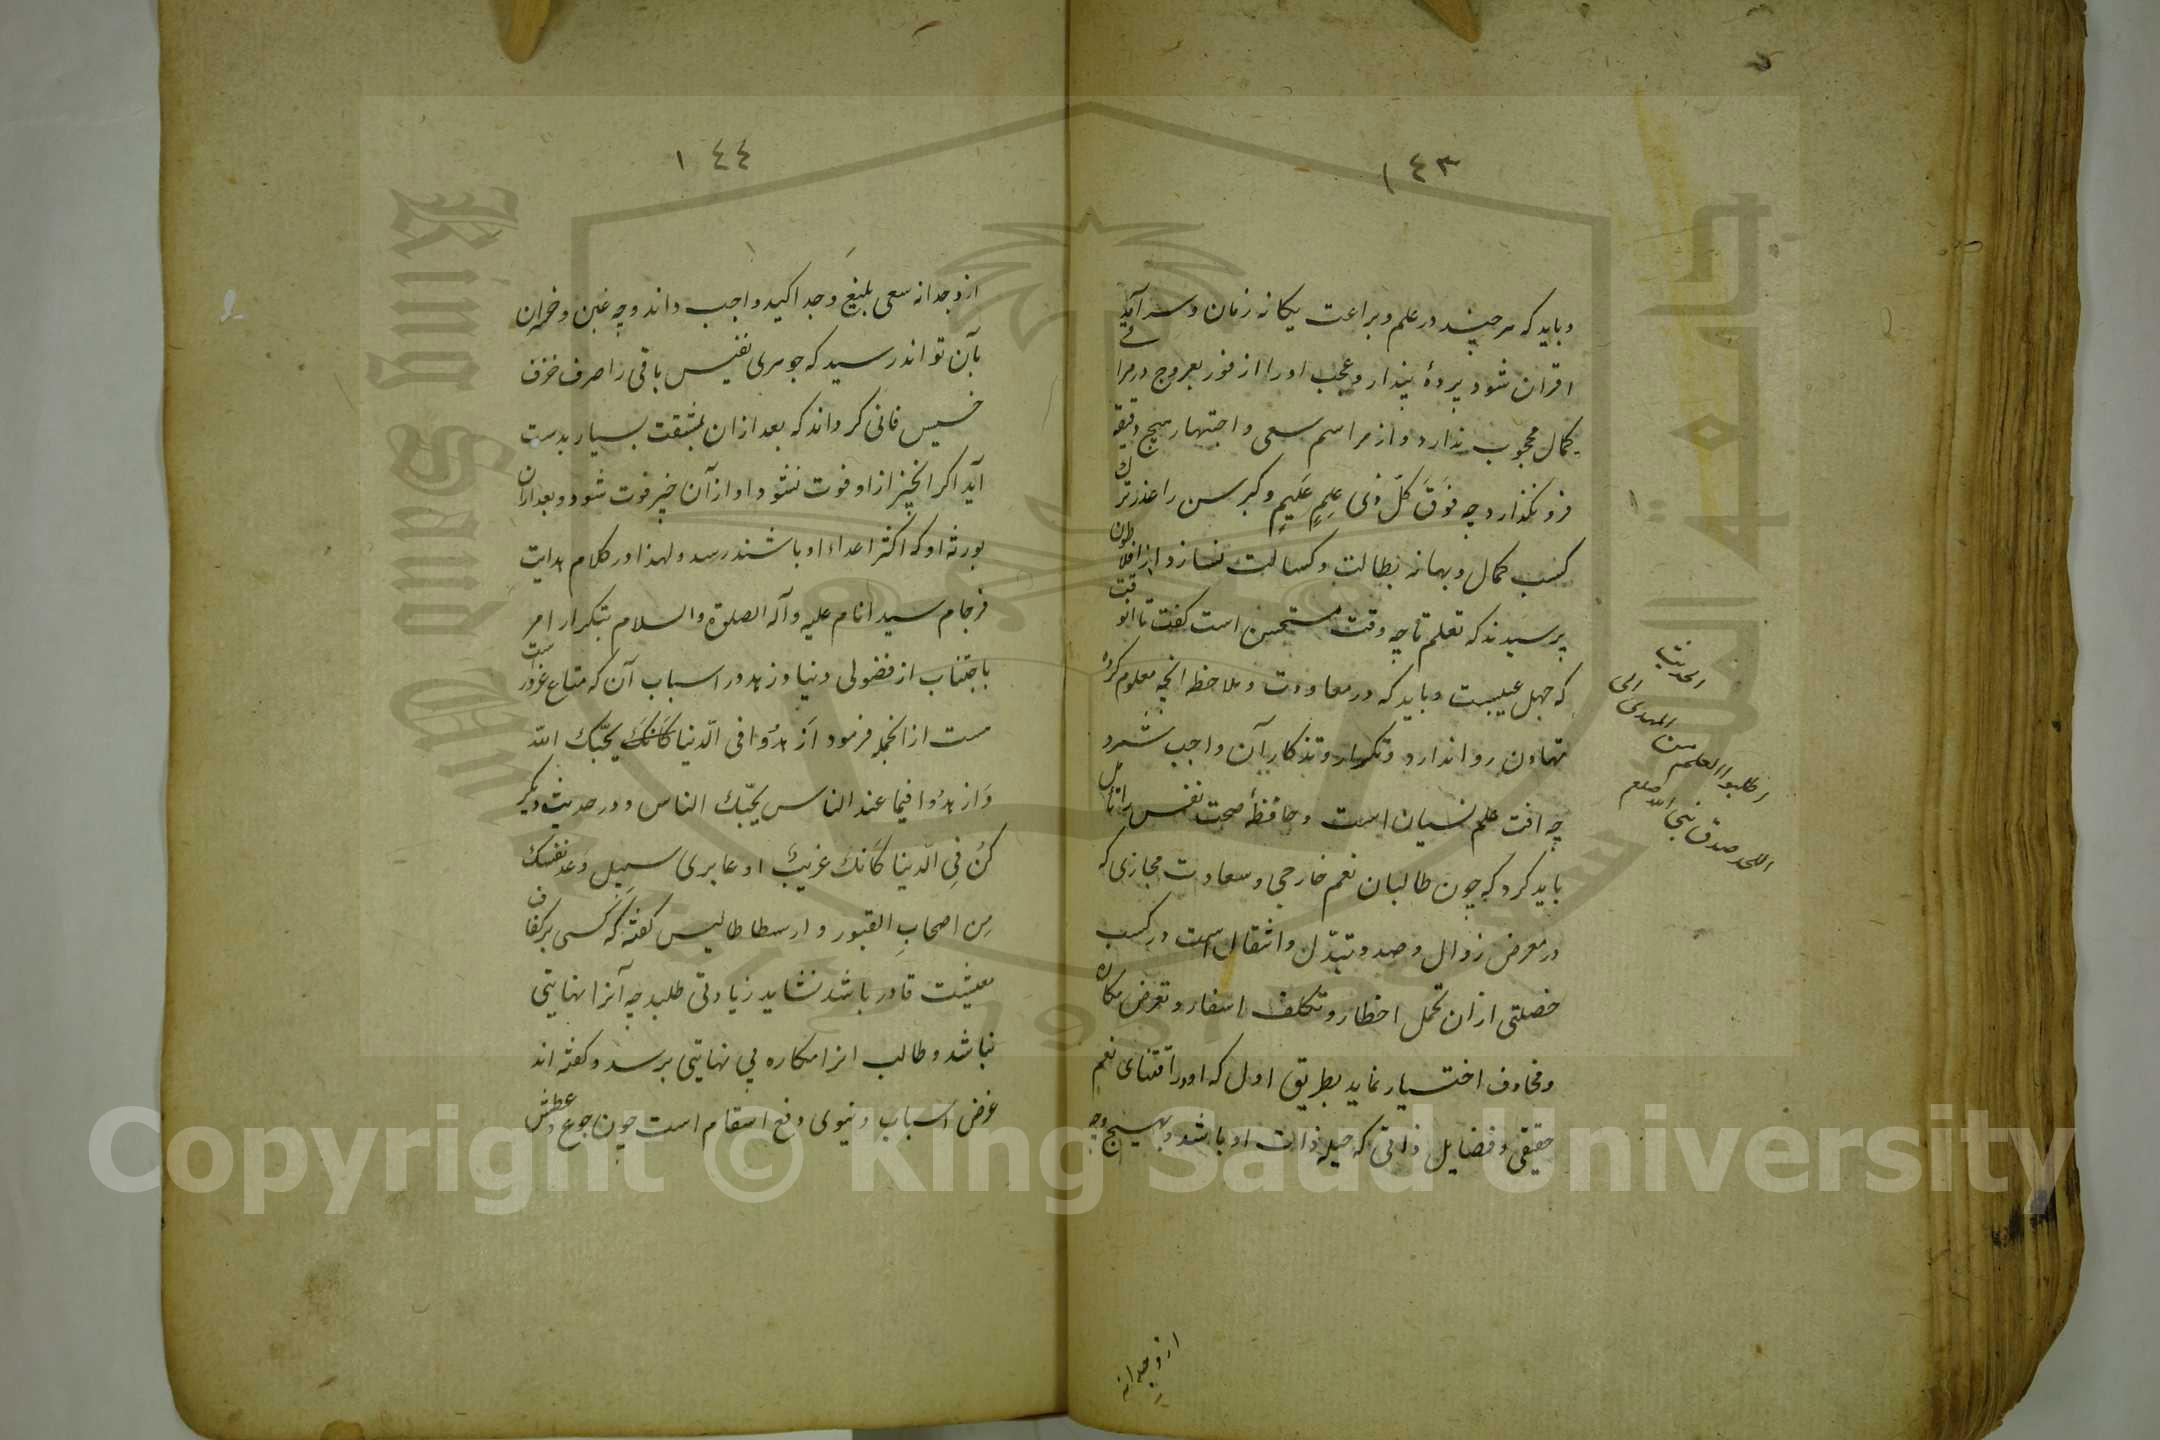 ١٤٣
وبايد كه هرچند در علم وبراعت يكانه زمان وسرآمد
اقران شود پردۀ پندار وعجب اورا از فوز بعروج در مرا
كمال محجوب ندارد واز مراسم سعى واجتهاد هيچ دقيقه
فرو نكذارد چه فَوقَ كلّ ذى عِلمٍ عَليمٍ وكبر سن را عذر ترك
كسب كمال وبهانه بطالت وكسالت نسازد از افلاطون
پرسيدند كه تعلم تا چه وقت مستحسن است كفت تا انوقت
كه جهل عيبست وبايد كه در معاودت وملاحظه انچه معلوم كرده
تهاون روا ندارد وتكرار وتذكار آن واجب شمرد
چه افت علم نسيان است وحافظۀ صحت نفس را تأمل
بايد كرد كه چون طالبان نعم خارجى وسعادت مجازى كه
در معرض زوال وصدد تبدّل وانتقال است در كسب
خصلتى ازان تحمل اخطار وتكلف اسفار وتعرض مكاره
ومخاوف اختيار نمايد بطريق اول كه اورا قتناى نعم
حقيقى وفضايل ذاتى كه حيله ذات او باشد وبهيچ وجه
الحديث
اطلبوا العلم من المهد الى
اللحد صدق نبى الله صلعم
ازو جدا نه
١٤٤
ازو جدا نه سعى بليغ وجد اكيد واجب داند وچه غبن وخسران
بآن تواند رسيد كه جوهرى نفيس باقى را صرف خزف
خسيس فانى كرداند كه بعد ازان بمشقت بسيار بدست
آيد اكر انچيز ازو فوت نشود او از آن خير فوت شود وبعد ازان
بورثه او كه اكثر اعداء او باشند رسد ولهذا در كلام هدايت
فرجام سيد انام عليه وآله الصلوة والسلام بتكرار امر
باجتناب از فضولى دنيا وزهد در اسباب آن كه متاع غرور است
هست از انجمله فرمود اَزهدُوا فى الدّنيا كَانّكَ يحّبك اللّه
وَازهدُوا فيما عند الناس يحّبك الناس ودر حديث ديكر
كُن فِى الّدنيا كَانّكَ غريبٌ او عابرى سبيل وَعدّ نفسك
مِن اصحابِ القبور وارسطاطاليس كفته كه كسى بر كفاف
معيشت قادر باشد نشايد زيادتى طلبد چه آنرا نهايتى
نباشد وطالب انرا مكاره بى نهايتى برسد وكفته اند
غرض اسباب دنيوى دفع اسقام است چون جوع وعطش
Copyright © King Saud University
King Saud University
جامعة الملك سعود
1957